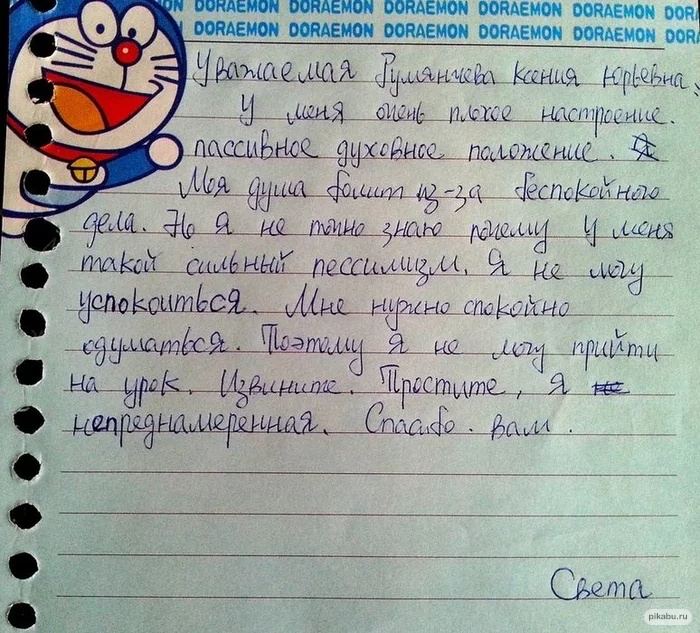 ON DORAEMON DORAEMON DORAEMON DORAEMON DORAEMON DOR
DORAEMON DORAEMON DORAEMON DORAEMON DORAEMON DORA
Уважаемая Румянцева Ксения Юрьевна,
У меня очень плохое настроение.
пассивное духовное положение. Я
Моя душа болит из-за беспокойного
дела. Но я не точно знаю почему у меня
такой сильный пессимизм. Я не могу
успокоиться. Мне нужно спокойно
одуматься. Поэтому я не могу прийти
на урок. Извините. Простите, я не
непреднамеренная. Спасибо. вам.
Света
pikabu.ru